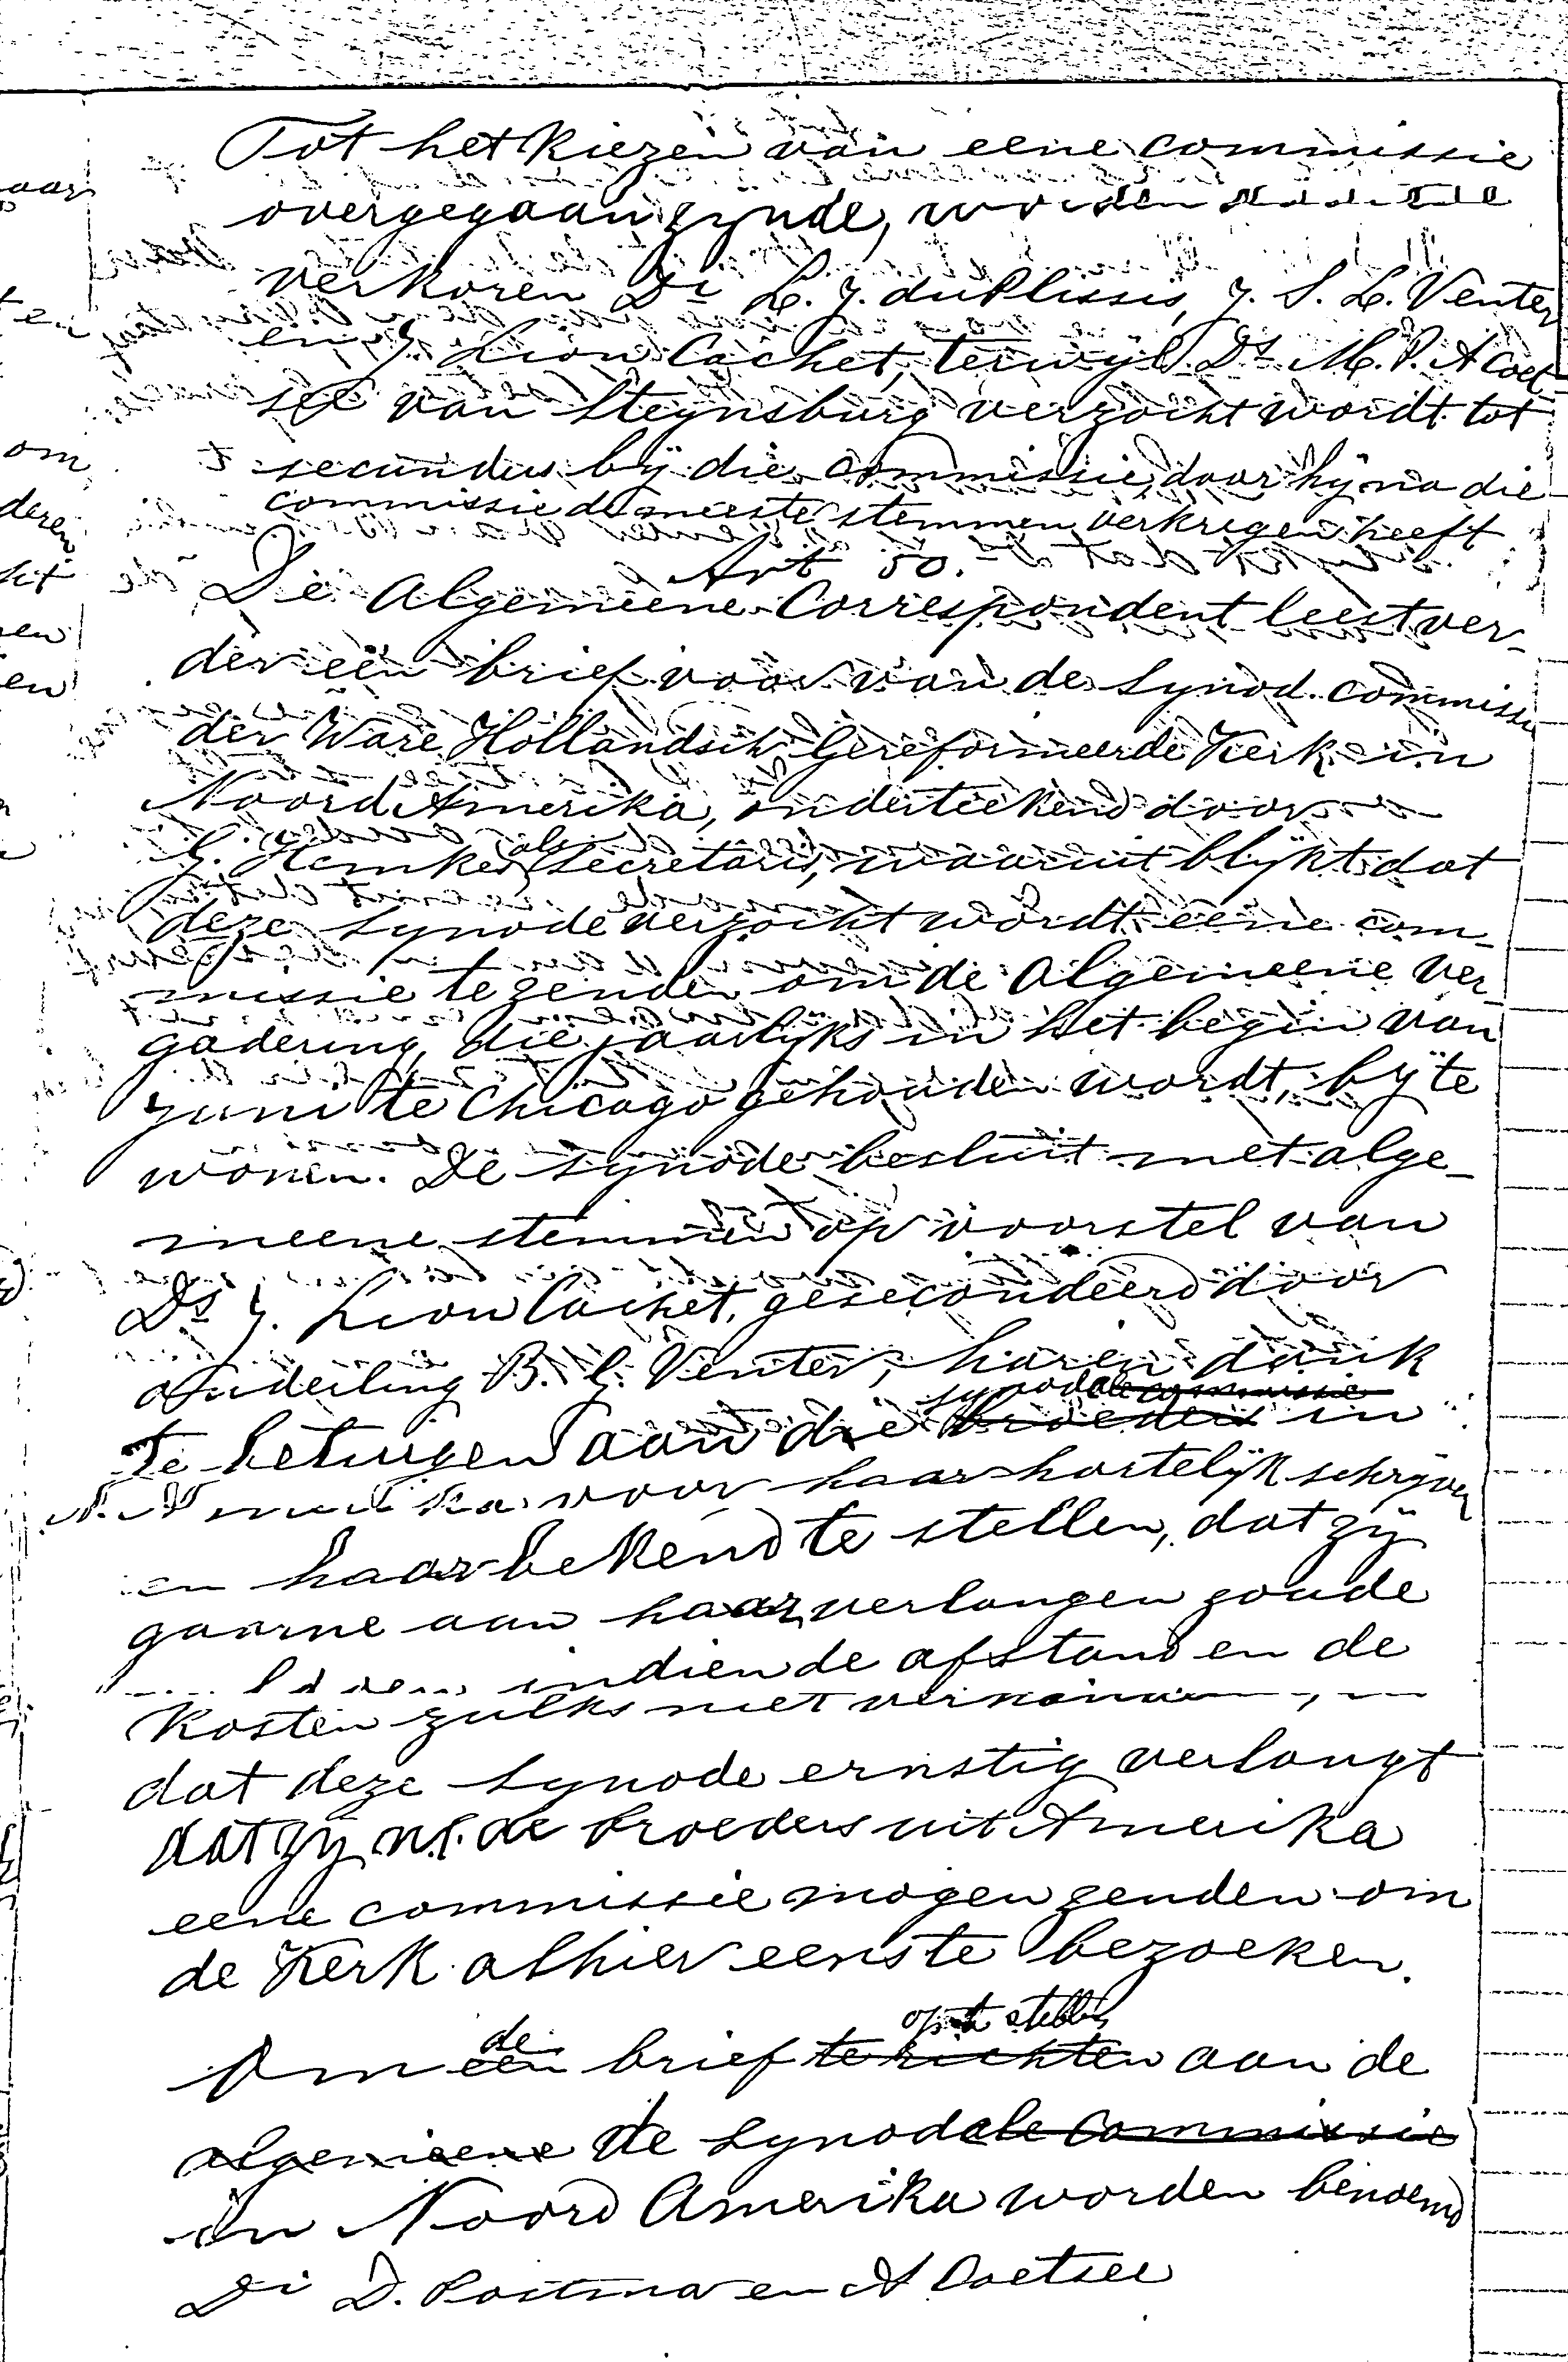 Tot het kiezen van eene commissie
overgegaan zynde, worden
verkoren Di L. J. du Plessis, J. S. L. Venter
en J. Lion Cachet, terwyl Ds M. P. A Coet-
see van Steynsburg verzocht wordt tot
secundus bÿ die commissie, daar hÿ na die
commissie de meeste stemmen verkregen heeft
Art 50.
De Algemeene Correspondent leest ver-
der een brief voor van de Synod. commissie
der Ware Hollandsch Gereformeerde Kerk in
Noord Amerika, onderteekend door
G. Hemkes als Secretaris, waaruit blÿkt dat
deze Synode verzocht wordt eene com-
missie te zenden om de Algemeene Ver-
gadering, die jaarlÿks in het begin van
Juni te Chicago gehouden wordt, bÿ te
wonen. De Synode besluit met alge-
meene stemmen op voorstel van
Ds J. Lion Cachet, gesecondeerd door
Ouderling B. J. Venter, haren dank
synodale commissie
te betuigen aan die broeders in
N. Amerika voor haar hartelÿk schrÿven
en haar bekend te stellen, dat zÿ
gaarne aan haar verlangen zoude
indien de afstand en de
kosten zulks niet
dat deze Synode ernstig verlangt
dat zÿ n.l. de broeders uit Amerika
eene commissie mogen zenden om
de Kerk alhier eens te bezoeken.
de op te stellen
Om een brief te richten aan de
algemeene de Synodale Commissie
in Noord Amerika worden benoemd
Di D. Postma en A Coetsee